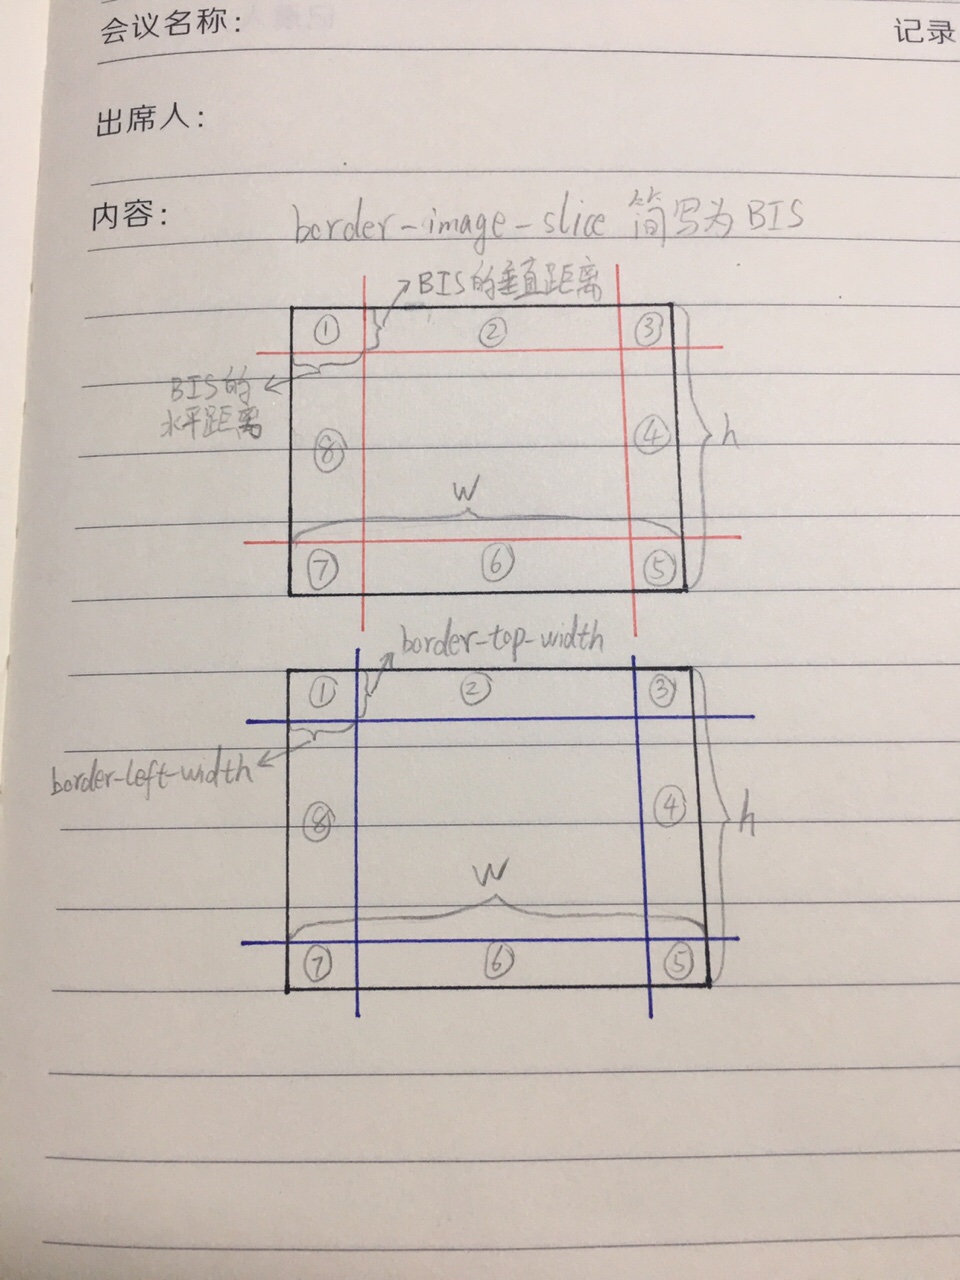 会议名称：
记录
出席人：
内容：
border-image-slice 简写为BIS
BIS的垂直距离
① ② ③
BIS的
水平距离
⑧ ④ h
W
⑦ ⑥ ⑤
border-top-width
① ② ③
border-left-width
⑧ ④ h
W
⑦ ⑥ ⑤